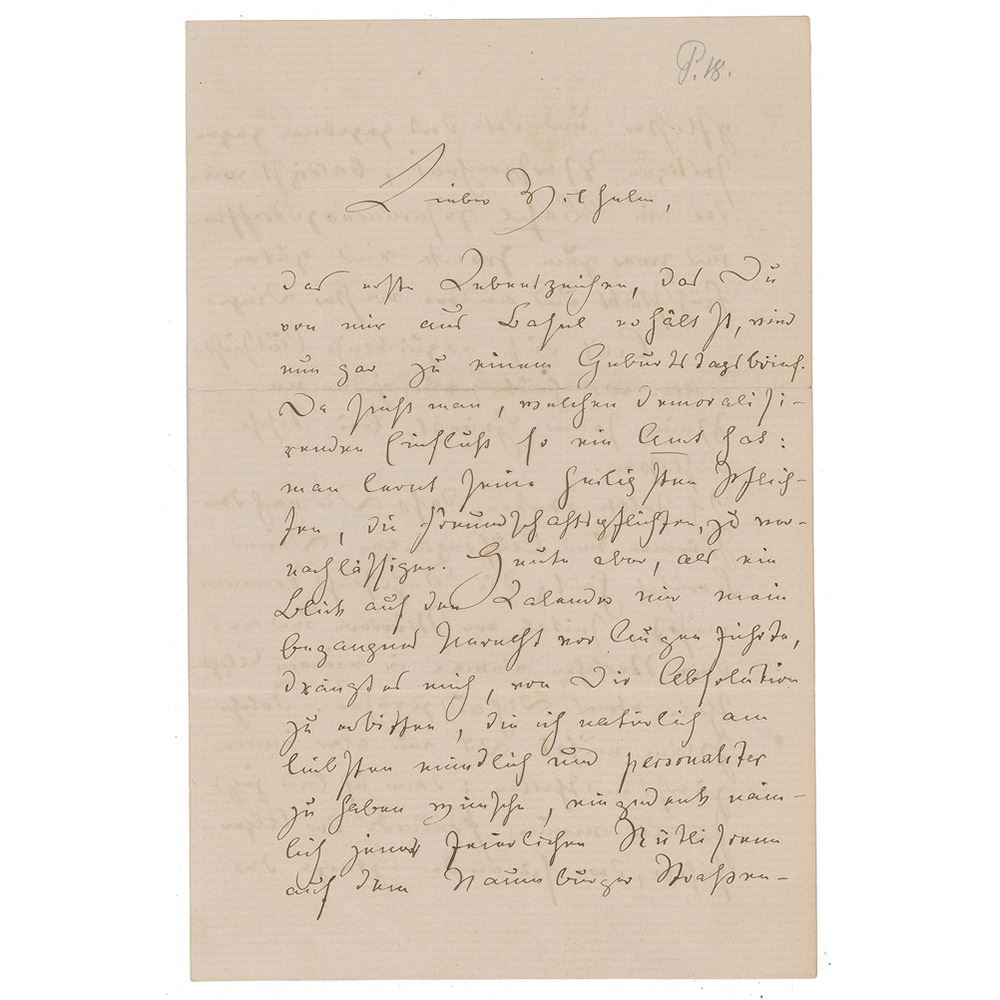 P. 18.
Lieber Wilhelm,
das erste Lebenszeichen, das Du
von mir aus Basel erhältst, wird
nun gar zu einem Geburtstagsbrief.
Da sieht man, welchen demoralisi-
renden Einfluß so ein Amt hat:
man lernt seine heiligsten Pflich-
ten, die Freundschaftspflichten, zu ver-
nachlässigen. Heute aber, als ein
Blick auf den Kalender mir mein
begangnes Unrecht vor Augen führte,
drängt es mich, von Dir Absolution
zu erbitten, die ich natürlich am
liebsten mündlich und personaliter
zu haben wünsche, eingedenk näm-
lich jener feierlichen Rütliscene
auf dem Naumburger Straßen-